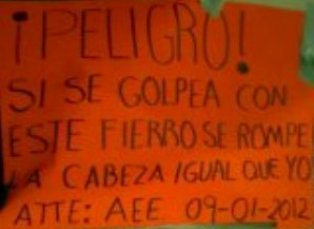 ¡PELIGRO!
SI SE GOLPEA CON
ESTE FIERRO SE ROMPE
LA CABEZA IGUAL QUE YO
ATTE: AEE 09-01-2012